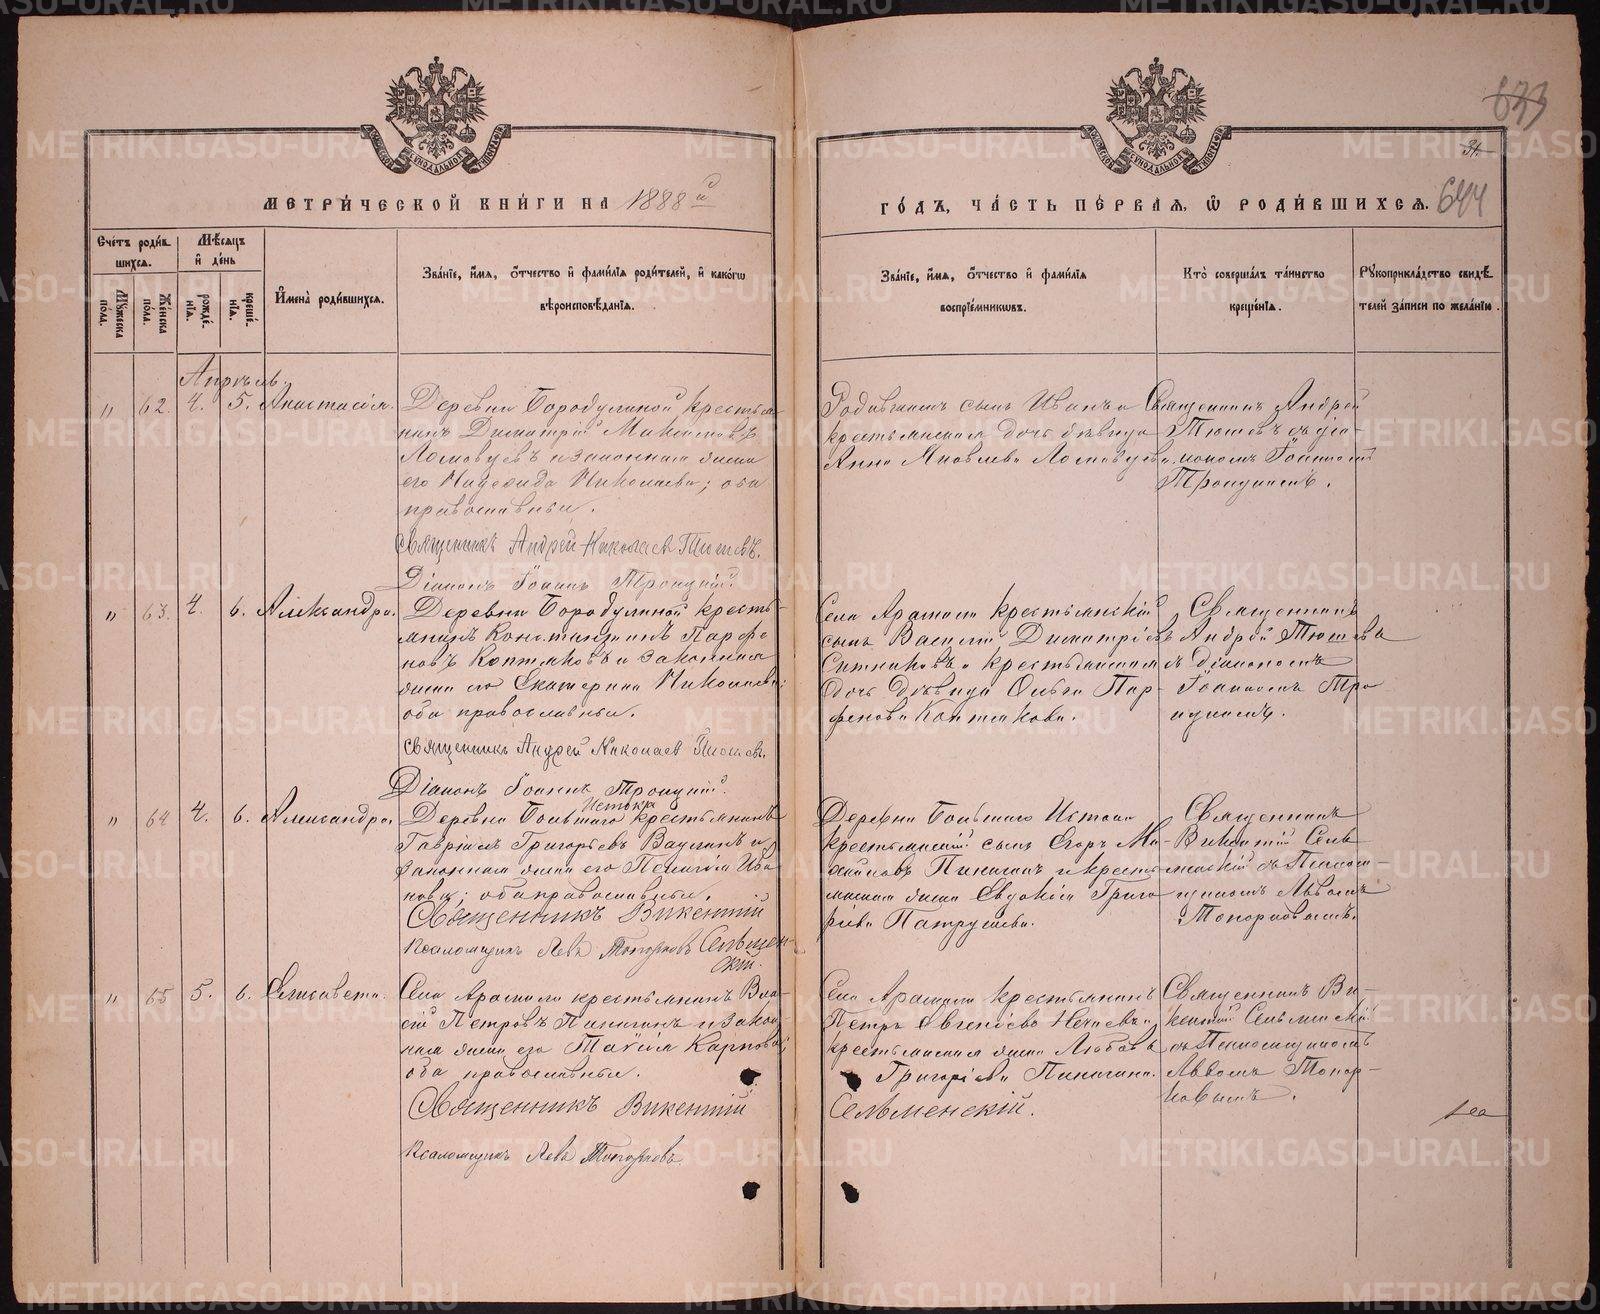 МЕТРИ́ЧЕСКОЙ КНИ́ГИ НА 1888й
ГО́ДЪ, ЧА́СТЬ ПЕ́РВАЯ, Ѡ РОДИ́ВШИХСЯ.
633
31.
644
Сче́тъ роди́в
шихся.
Мꙋ́жеска
пола.
Же́нска
пола.
Мѣ́сяцъ
и҆ де́нь
рожде́
нія.
креще́
нія.
И҆́мена роди́вшихся.
Зва́ніе, и҆́мя, ѻ҆́тчество и҆ фами́лія роди́телей, и҆ како́гѡ
вѣроисповѣ́данія.
Зва́ніе, и҆́мя, ѻ҆́тчество и҆ фами́лія
воспріе́мниковъ.
Кто̀ соверша́лъ та́инство
креще́нія.
Рꙋкоприкла́дство свидѣ́
телей за́писи по жела́нію.
Апрѣль.
" 62. 4. 5. Анастасія.
Деревни Бородулиной крестья-
нинъ Димитрій Максимовъ
Ломовцевъ и законная жена
его Надежда Николаева; оба
православные.
Священникъ Андрей Николаев Тюшевъ.
Діаконъ Іоаннъ Троицкій.
Родившаго сынъ Иванъ и
крестьянская дочь дѣвица
Анна Яковлева Ломовцева.
Священникъ Андрей
Тюшевъ съ діа-
кономъ Іоанномъ
Троицкимъ.
" 63. 4. 6. Александра.
Деревни Бородулиной кресть-
янинъ Константинъ Парфе
новъ Коптяковъ и законная
жена его Екатерина Николаева;
оба православные.
Священникъ Андрей Николаев Тюшевъ.
Діаконъ Іоаннъ Троицкій.
Села Арамили крестьянскій
сынъ Василій Димитріевъ
Ситниковъ и крестьянская
дочь дѣвица Ольга Пар-
фенова Коптякова.
Священникъ
Андрей Тюшевъ
съ діакономъ
Іоанномъ Тро
ицкимъ.
" 64 4. 6. Александра.
Деревни Большаго Истока крестьянинъ
Гавріилъ Григорьевъ Ваулинъ и
законная жена его Пелагія Ива
нова; оба православные.
Священникъ Викентій
Сельмен-
скій.
Псаломщикъ Левъ Топорковъ
Деревни Большаго Истока
крестьянскій сынъ Егоръ Ми-
хайловъ Пинигинъ и кресть-
янская жена Евдокія Григо
рьева Патрушева.
Священникъ
Викентій Сель
менскій съ Псалом-
щикомъ Львомъ
Топорковымъ.
" 65 5. 6. Елисавета.
Села Арамили крестьянинъ Вла-
сій Петровъ Пинигинъ и закон-
ная жена его Таисія Карпова;
оба православные.
Священникъ Викентій
Сельменскій.
Псаломщикъ Левъ Топорковъ.
Села Арамили крестьянинъ
Петръ Евгеніевъ Нечаевъ и
крестьянская жена Любовь
Григоріева Пинигина.
Священникъ Ви-
кентій Сельменскій
съ Псаломщикомъ
Львомъ Топор-
ковымъ.
METRIKI.GASO-URAL.RU